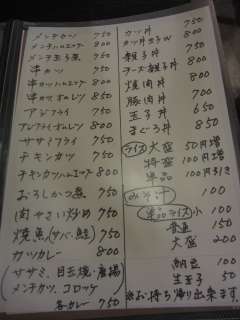 メンチカツ 750
メンチハムエッグ 800
メンチ玉子煮 750
串カツ 750
串カツハムエッグ 800
串カツオムレツ 850
アジフライ 750
アジフライオムレツ 850
ササミフライ 750
チキンカツ 750
チキンカツハムエッグ 800
おろしかつ煮 750
肉やさい炒め 750
焼魚(サバ・鮭) 750
カツカレー 800
(ササミ、目玉焼・唐揚
メンチカツ、コロッケ)
各カレー 750
カツ丼 750
カツ玉子丼W 800
親子丼 750
チーズ親子丼 800
焼肉丼 800
豚肉丼 700
玉子丼 650
まぐろ丼 850
ライス 大盛 50円増
特盛 100円増
単品 100円引き
みそ汁 100
単品ライス 小 100
普通 150
大盛 200
納豆 100
生玉子 50
※お持ち帰り出来ます。